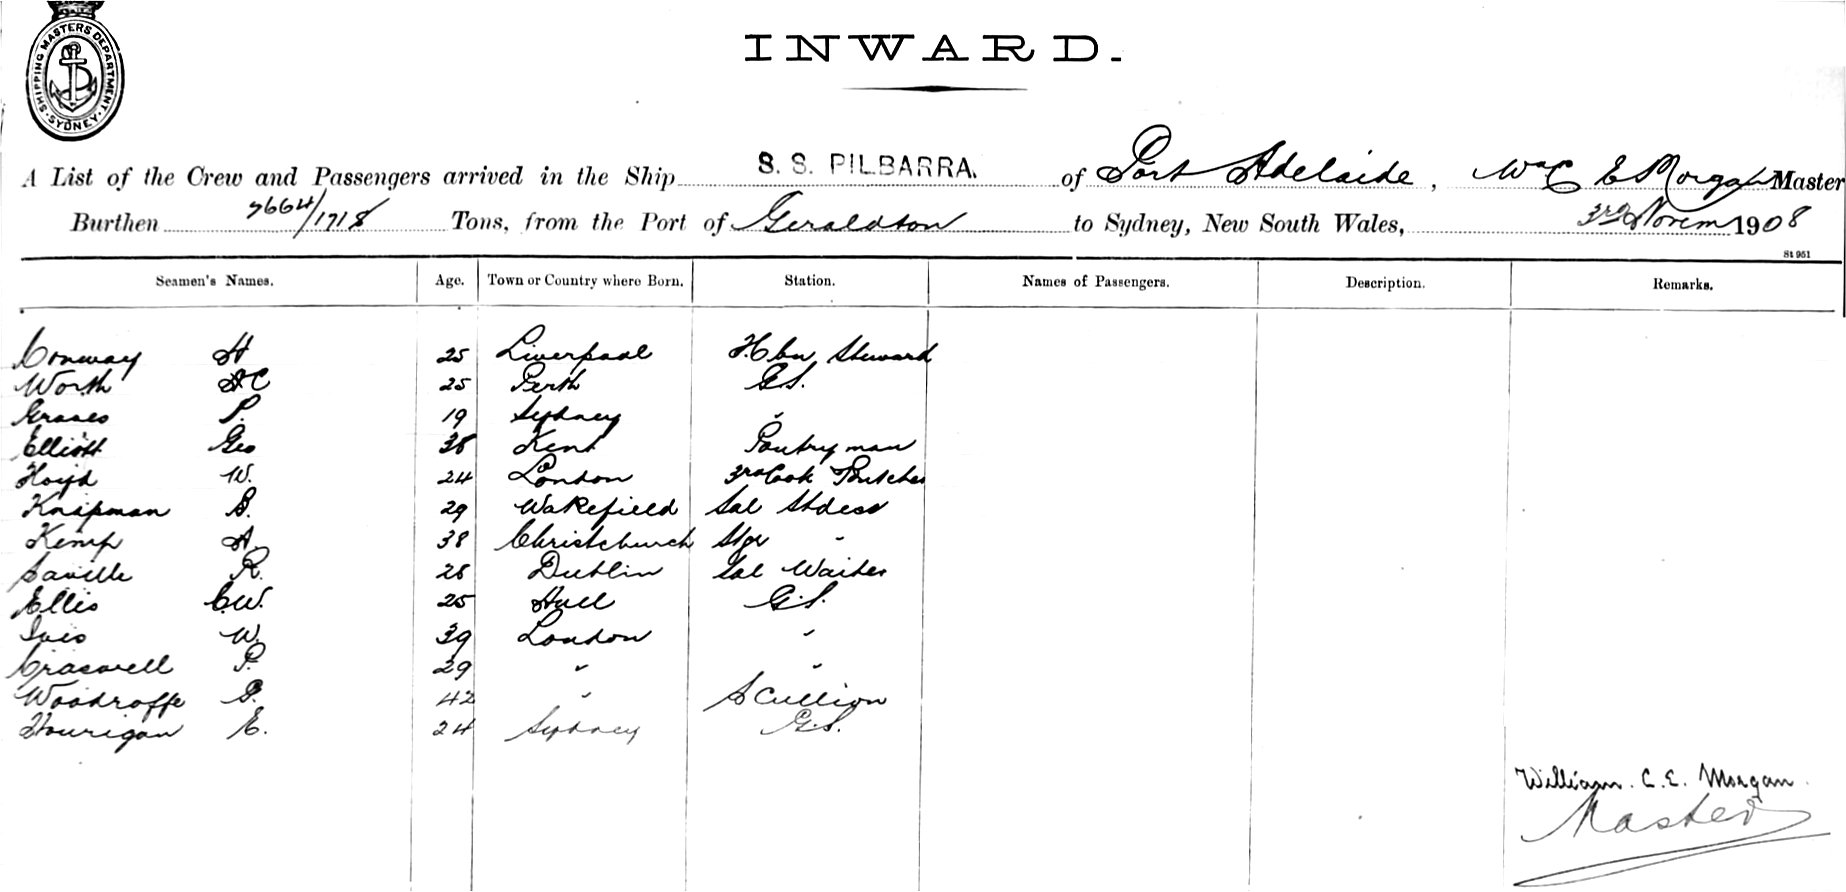 SHIPPING MASTERS DEPARTMENT. SYDNEY
INWARD.
A List of the Crew and Passengers arrived in the Ship S. S. PILBARRA. of Port Adelaide, Wm C E Morgan Master
Burthen 2664/1718 Tons, from the Port of Geraldton to Sydney, New South Wales, 3rd Novem 1908
St 951
Seamen's Names. Age. Town or Country where Born. Station. Names of Passengers. Description. Remarks.
Conway H 25 Liverpool Steward
Worth A C 25 Perth G.S.
Graves P. 19 Sydney "
Elliott Geo 38 Kent Pantryman
W. 24 London 3rd Cook Butcher
Knipman S. 29 Wakefield Sal Stdess
Kemp A. 38 Christchurch Stge "
Saville R. 26 Dublin Sal Waiter
Ellis C.W. 25 Hull G.S.
Ives W. 39 London "
Craswell P. 29 " "
Woodroffe S. 42 " Scullion
Hourigan E. 24 Sydney G.S.
William. C. E. Morgan.
Master